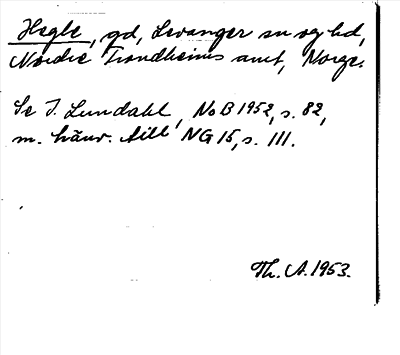 Hegle, gd, Levanger sn og hd,
Nordre Trondheims amt, Norge.
Se I. Lundahl, NoB 1952, s. 82,
m. hänv. till NG 15, s. 111.
Th. A. 1953.